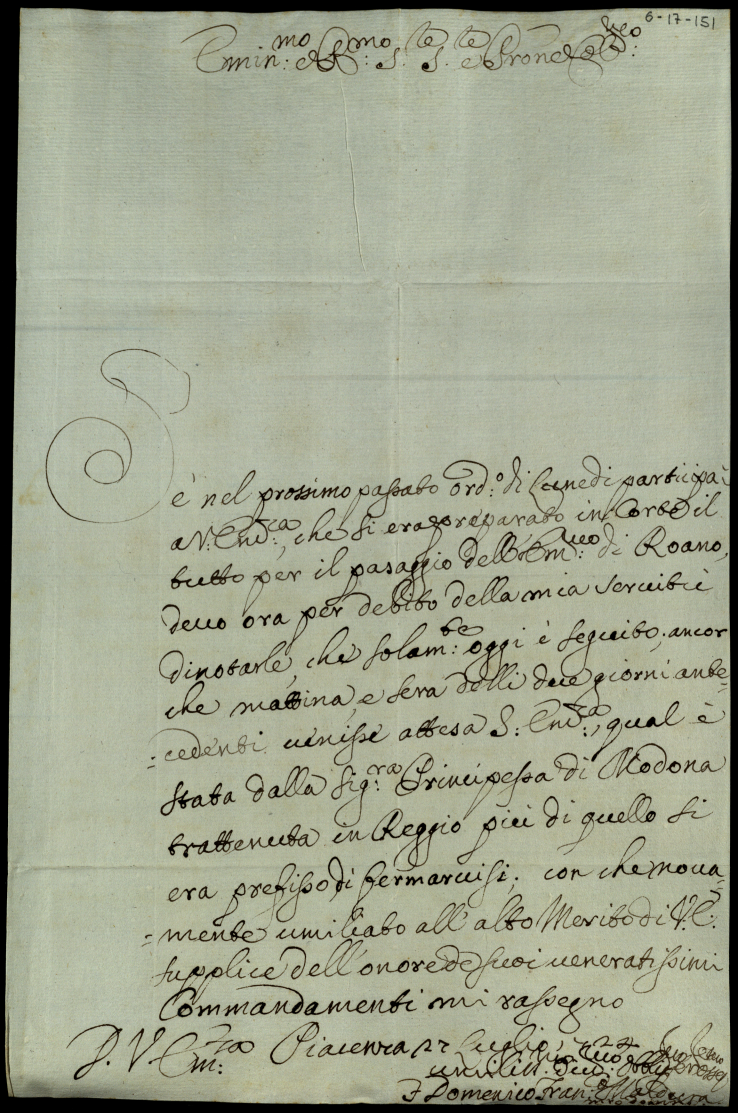 6-17-151
Emin:mo e R:mo S:te S:te e Pron e Col:
Se nel prossimo passato ord:o di Lunedi participai
a V: Em:za, che si era preparato in Corte il
tutto per il pasaggio dell' Em:mo di Roano,
devo ora per debito della mia servitù
dinotarle, che solam:te oggi è seguito, ancor
che mattina, e sera delli due giorni ante=
=cedenti venisse attesa S: Em:za, qual è
stata dalla Sig:ra Principessa di Modona
trattenuta in Reggio più di quello si
era prefisso di fermarvisi; con che nova=
=mente umiliato all' alto Merito di V: E:
supplice dell' onore de suoi veneratissimi
Commandamenti mi rassegno
D. V. Em:za Piacenza 27 Luglio
F Domenico Fran: